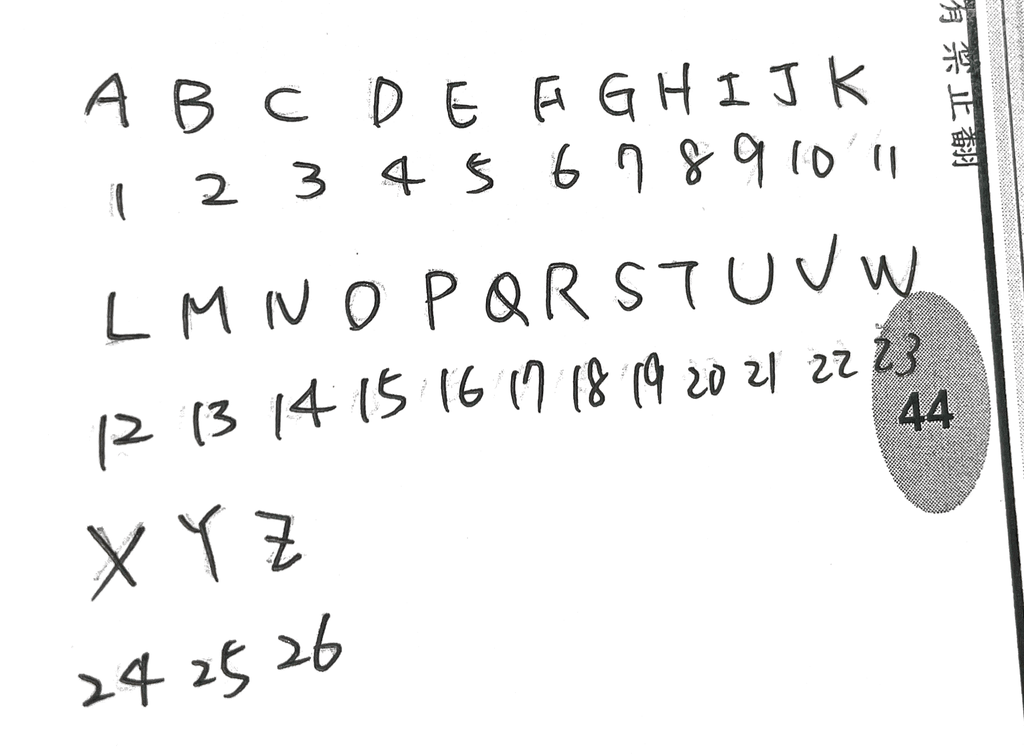 A B C D E F G H I J K
1 2 3 4 5 6 7 8 9 10 11
L M N O P Q R S T U V W
12 13 14 15 16 17 18 19 20 21 22 23
X Y Z
24 25 26
有 禁止翻
44